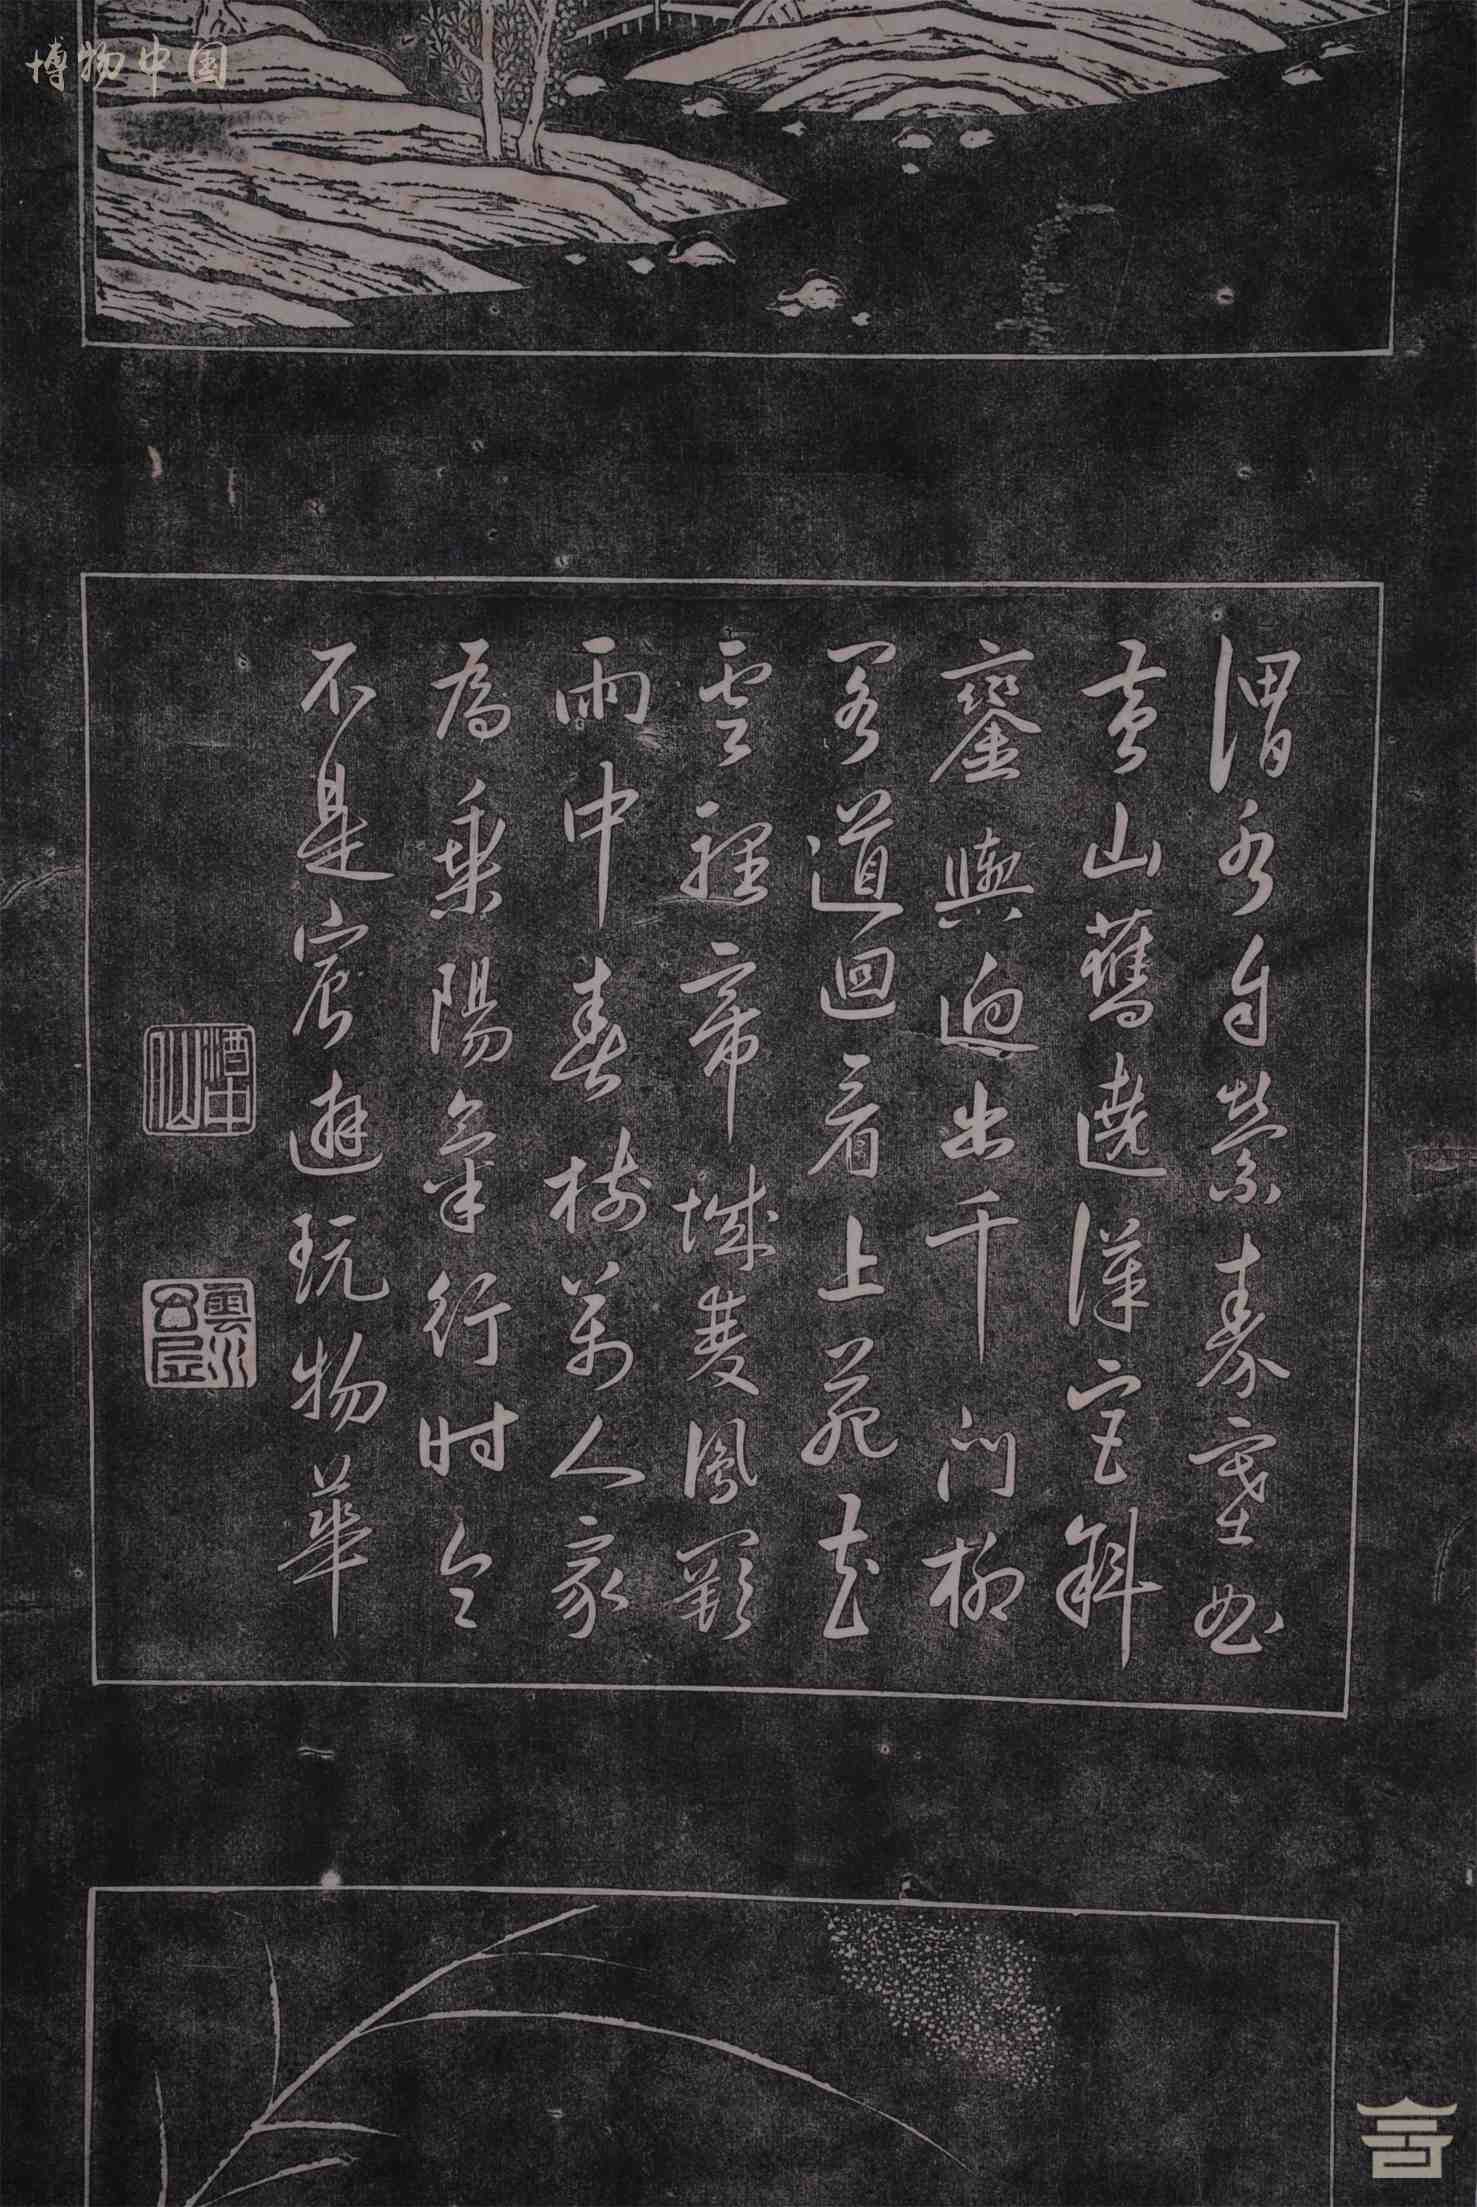 博物中国
渭水自縈秦塞曲
黃山舊遶漢宮斜
鑾輿迥出千門柳
閣道迴看上苑花
雲裡帝城雙鳳闕
雨中春樹萬人家
為乘陽氣行时令
不是宸遊玩物華